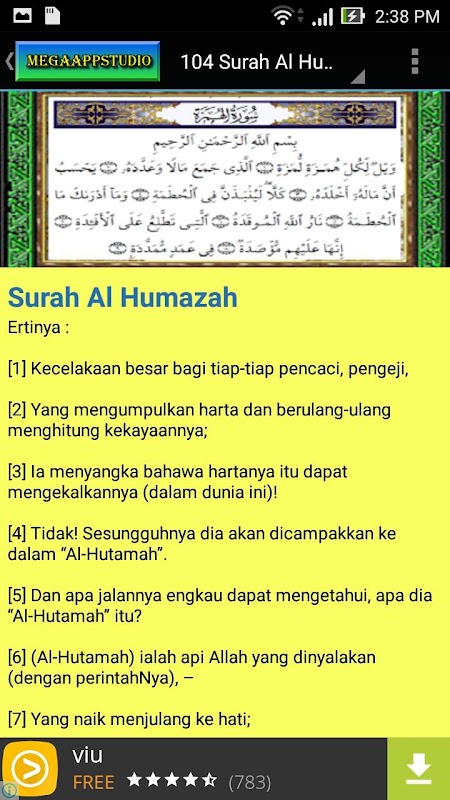 2:38 PM
MEGAAPPSTUDIO
104 Surah Al Hu..
سُورَةُ الهُمَزَةِ
بِسْمِ اللَّهِ الرَّحْمَٰنِ الرَّحِيمِ
وَيْلٌ لِّكُلِّ هُمَزَةٍ لُّمَزَةٍ ۝١ الَّذِى جَمَعَ مَالًا وَعَدَّدَهُۥ ۝٢ يَحْسَبُ
أَنَّ مَالَهُۥٓ أَخْلَدَهُۥ ۝٣ كَلَّا لَيُنۢبَذَنَّ فِى الْحُطَمَةِ ۝٤ وَمَآ أَدْرَىٰكَ مَا
الْحُطَمَةُ ۝٥ نَارُ اللَّهِ الْمُوقَدَةُ ۝٦ الَّتِى تَطَّلِعُ عَلَى الْأَفْـِٔدَةِ ۝٧
إِنَّهَا عَلَيْهِم مُّؤْصَدَةٌ ۝٨ فِى عَمَدٍ مُّمَدَّدَةٍۭ ۝٩
Surah Al Humazah
Ertinya :
[1] Kecelakaan besar bagi tiap-tiap pencaci, pengeji,
[2] Yang mengumpulkan harta dan berulang-ulang
menghitung kekayaannya;
[3] Ia menyangka bahawa hartanya itu dapat
mengekalkannya (dalam dunia ini)!
[4] Tidak! Sesungguhnya dia akan dicampakkan ke
dalam “Al-Hutamah”.
[5] Dan apa jalannya engkau dapat mengetahui, apa dia
“Al-Hutamah” itu?
[6] (Al-Hutamah) ialah api Allah yang dinyalakan
(dengan perintahNya), –
[7] Yang naik menjulang ke hati;
viu
FREE (783)